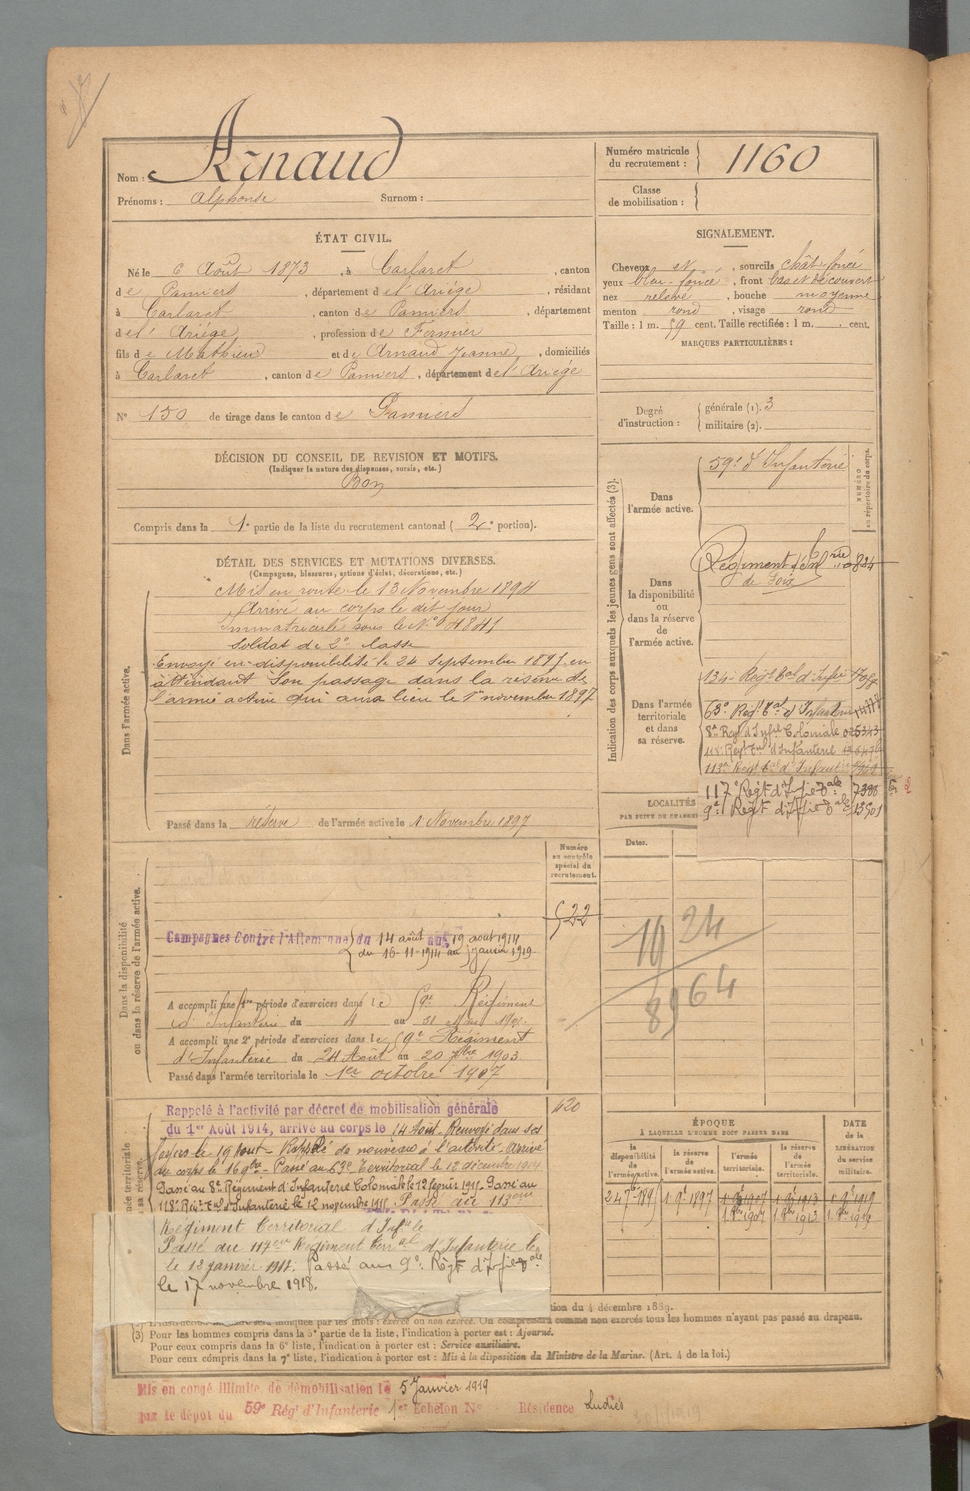 Nom : Arnaud
Prénoms : Alphonse Surnom :
Numéro matricule du recrutement : 1160
Classe de mobilisation :
ÉTAT CIVIL.
Né le 6 Août 1873, à Carlaret, canton
de Pamiers, département de l'Ariège, résidant
à Carlaret, canton de Pamiers, département
de l'Ariège, profession de Fermier
fils de Mathieu et de Arnaud Jeanne, domiciliés
à Carlaret, canton de Pamiers, département de l'Ariège
N° 150 de tirage dans le canton de Pamiers
SIGNALEMENT.
Cheveux , sourcils chât. foncé
yeux bleu-foncé, front bas et découvert
nez relevé, bouche moyenne
menton rond, visage rond
Taille : 1 m. 59 cent. Taille rectifiée : 1 m. cent.
MARQUES PARTICULIÈRES :
Degré d'instruction : générale (1). 3
militaire (2).
DÉCISION DU CONSEIL DE REVISION ET MOTIFS.
(Indiquer la nature des dispenses, sursis, etc.)
Bon
Compris dans la 1e partie de la liste du recrutement cantonal (2e portion).
DÉTAIL DES SERVICES ET MUTATIONS DIVERSES.
(Campagnes, blessures, actions d'éclat, décorations, etc.)
Dans l'armée active.
Mis en route le 13 Novembre 1894
Arrivé au corps le dit jour
Immatriculé sous le N° 4841
Soldat de 2e classe
Envoyé en disponibilité le 24 Septembre 1897 en
attendant son passage dans la réserve de
l'armée active qui aura lieu le 1er novembre 1897
Passé dans la réserve de l'armée active le 1 Novembre 1897
Indication des corps auxquels les jeunes gens sont affectés (3).
NUMÉRO au répertoire du corps.
Dans l'armée active.
59e d'Infanterie
Dans la disponibilité ou dans la réserve de l'armée active.
Régiment d'Infrie 0824
de Foix
Dans l'armée territoriale et dans sa réserve.
134e Régt Tal d'Infie
63e Régt Tal d'Infanterie
8e Régt d'Infie Coloniale 025343
118e Régt Tal d'Infanterie
113e Régt Tal d'Infanterie
117e Régt d'Infie Tale 7398
9e Régt d'Infie Tale 13901
LOCALITÉS
Dates.
Numéro au contrôle spécial du recrutement.
522
Dans la disponibilité ou dans la réserve de l'armée active.
Campagnes Contre l'Allemagne du 14 août au 19 août 1914
du 16-11-1914 au 5 janvier 1919
A accompli une 1re période d'exercices dans le 59e Régiment
d'Infanterie du 4 au 31 Mai 190
A accompli une 2e période d'exercices dans le 59e Régiment
d'Infanterie du 24 Août au 20 7bre 1903
Passé dans l'armée territoriale le 1er octobre 1907
19 24
89 64
620
Rappelé à l'activité par décret de mobilisation générale
du 1er Août 1914, arrivé au corps le 14 Août. Renvoyé dans ses
foyers le 19 août - Rappelé de nouveau à l'activité. Arrivé
au corps le 16 9bre - Passé au 63e Territorial le 12 décembre 1914
Passé au 8e Régiment d'Infanterie Coloniale le 12 1915. Passé au
118e Régt Tal d'Infanterie le 12 novembre 1915. Passé au 113ème
Régiment Territorial d'Infie le
Passé au 117ème Régiment Terrial d'Infanterie le
le 13 janvier 1918. Passé au 9e Régt d'Infie Tale
le 17 novembre 1918.
ÉPOQUE
À LAQUELLE L'HOMME DOIT PASSER DANS
la disponibilité de l'armée active.
la réserve de l'armée active.
l'armée territoriale.
la réserve de l'armée territoriale.
DATE de la LIBÉRATION du service militaire.
24 7bre 1897 1 9e 1897 1 9e 1907 1 9e 1913 1 9e 1919
1. 8bre 1907 1. 8bre 1913 1. 8bre 1919
tion du 4 décembre 1889.
indiquée par les mots : exercé ou non exercé. On comprendra comme non exercés tous les hommes n'ayant pas passé au drapeau.
(3) Pour les hommes compris dans la 5e partie de la liste, l'indication à porter est : Ajourné.
Pour ceux compris dans la 6e liste, l'indication à porter est : Service auxiliaire.
Pour ceux compris dans la 7e liste, l'indication à porter est : Mis à la disposition du Ministre de la Marine. (Art. 4 de la loi.)
Mis en congé illimité de démobilisation le 5 Janvier 1919
par le dépôt du 59e Rég' d'Infanterie 1er Echelon N° Résidence Ludiès